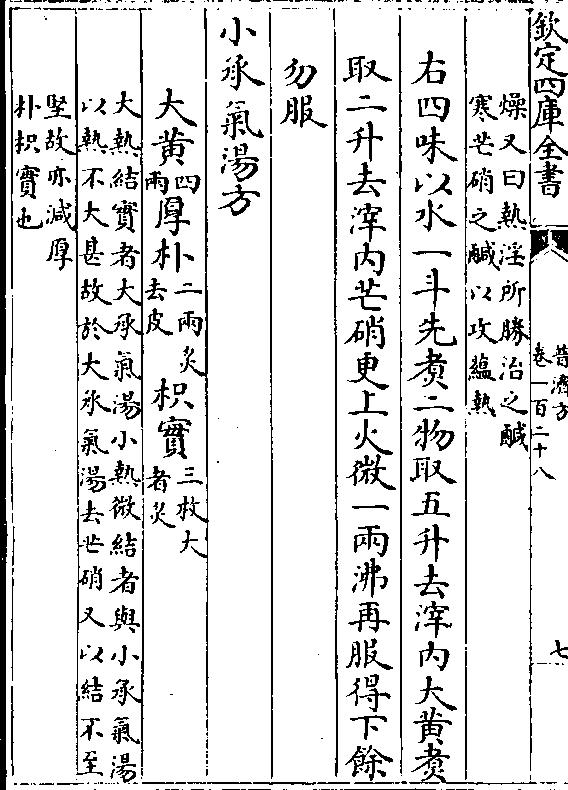 欽定四庫全書
普濟方
卷一百二十八
七
燥又曰熱淫所勝治之鹹
寒芒硝之鹹以攻蘊熱
右四味以水一斗先煑二物取五升去滓内大黄煑
取二升去滓内芒硝更上火微一兩沸再服得下餘
勿服
小承氣湯方
大黄四兩厚朴二兩炙去皮枳實三枚大者炙
大熱結實者大承氣湯小熱微結者與小承氣湯
以熱不大甚故於大承氣湯去芒硝又以結不至
堅故亦減厚
朴枳實也